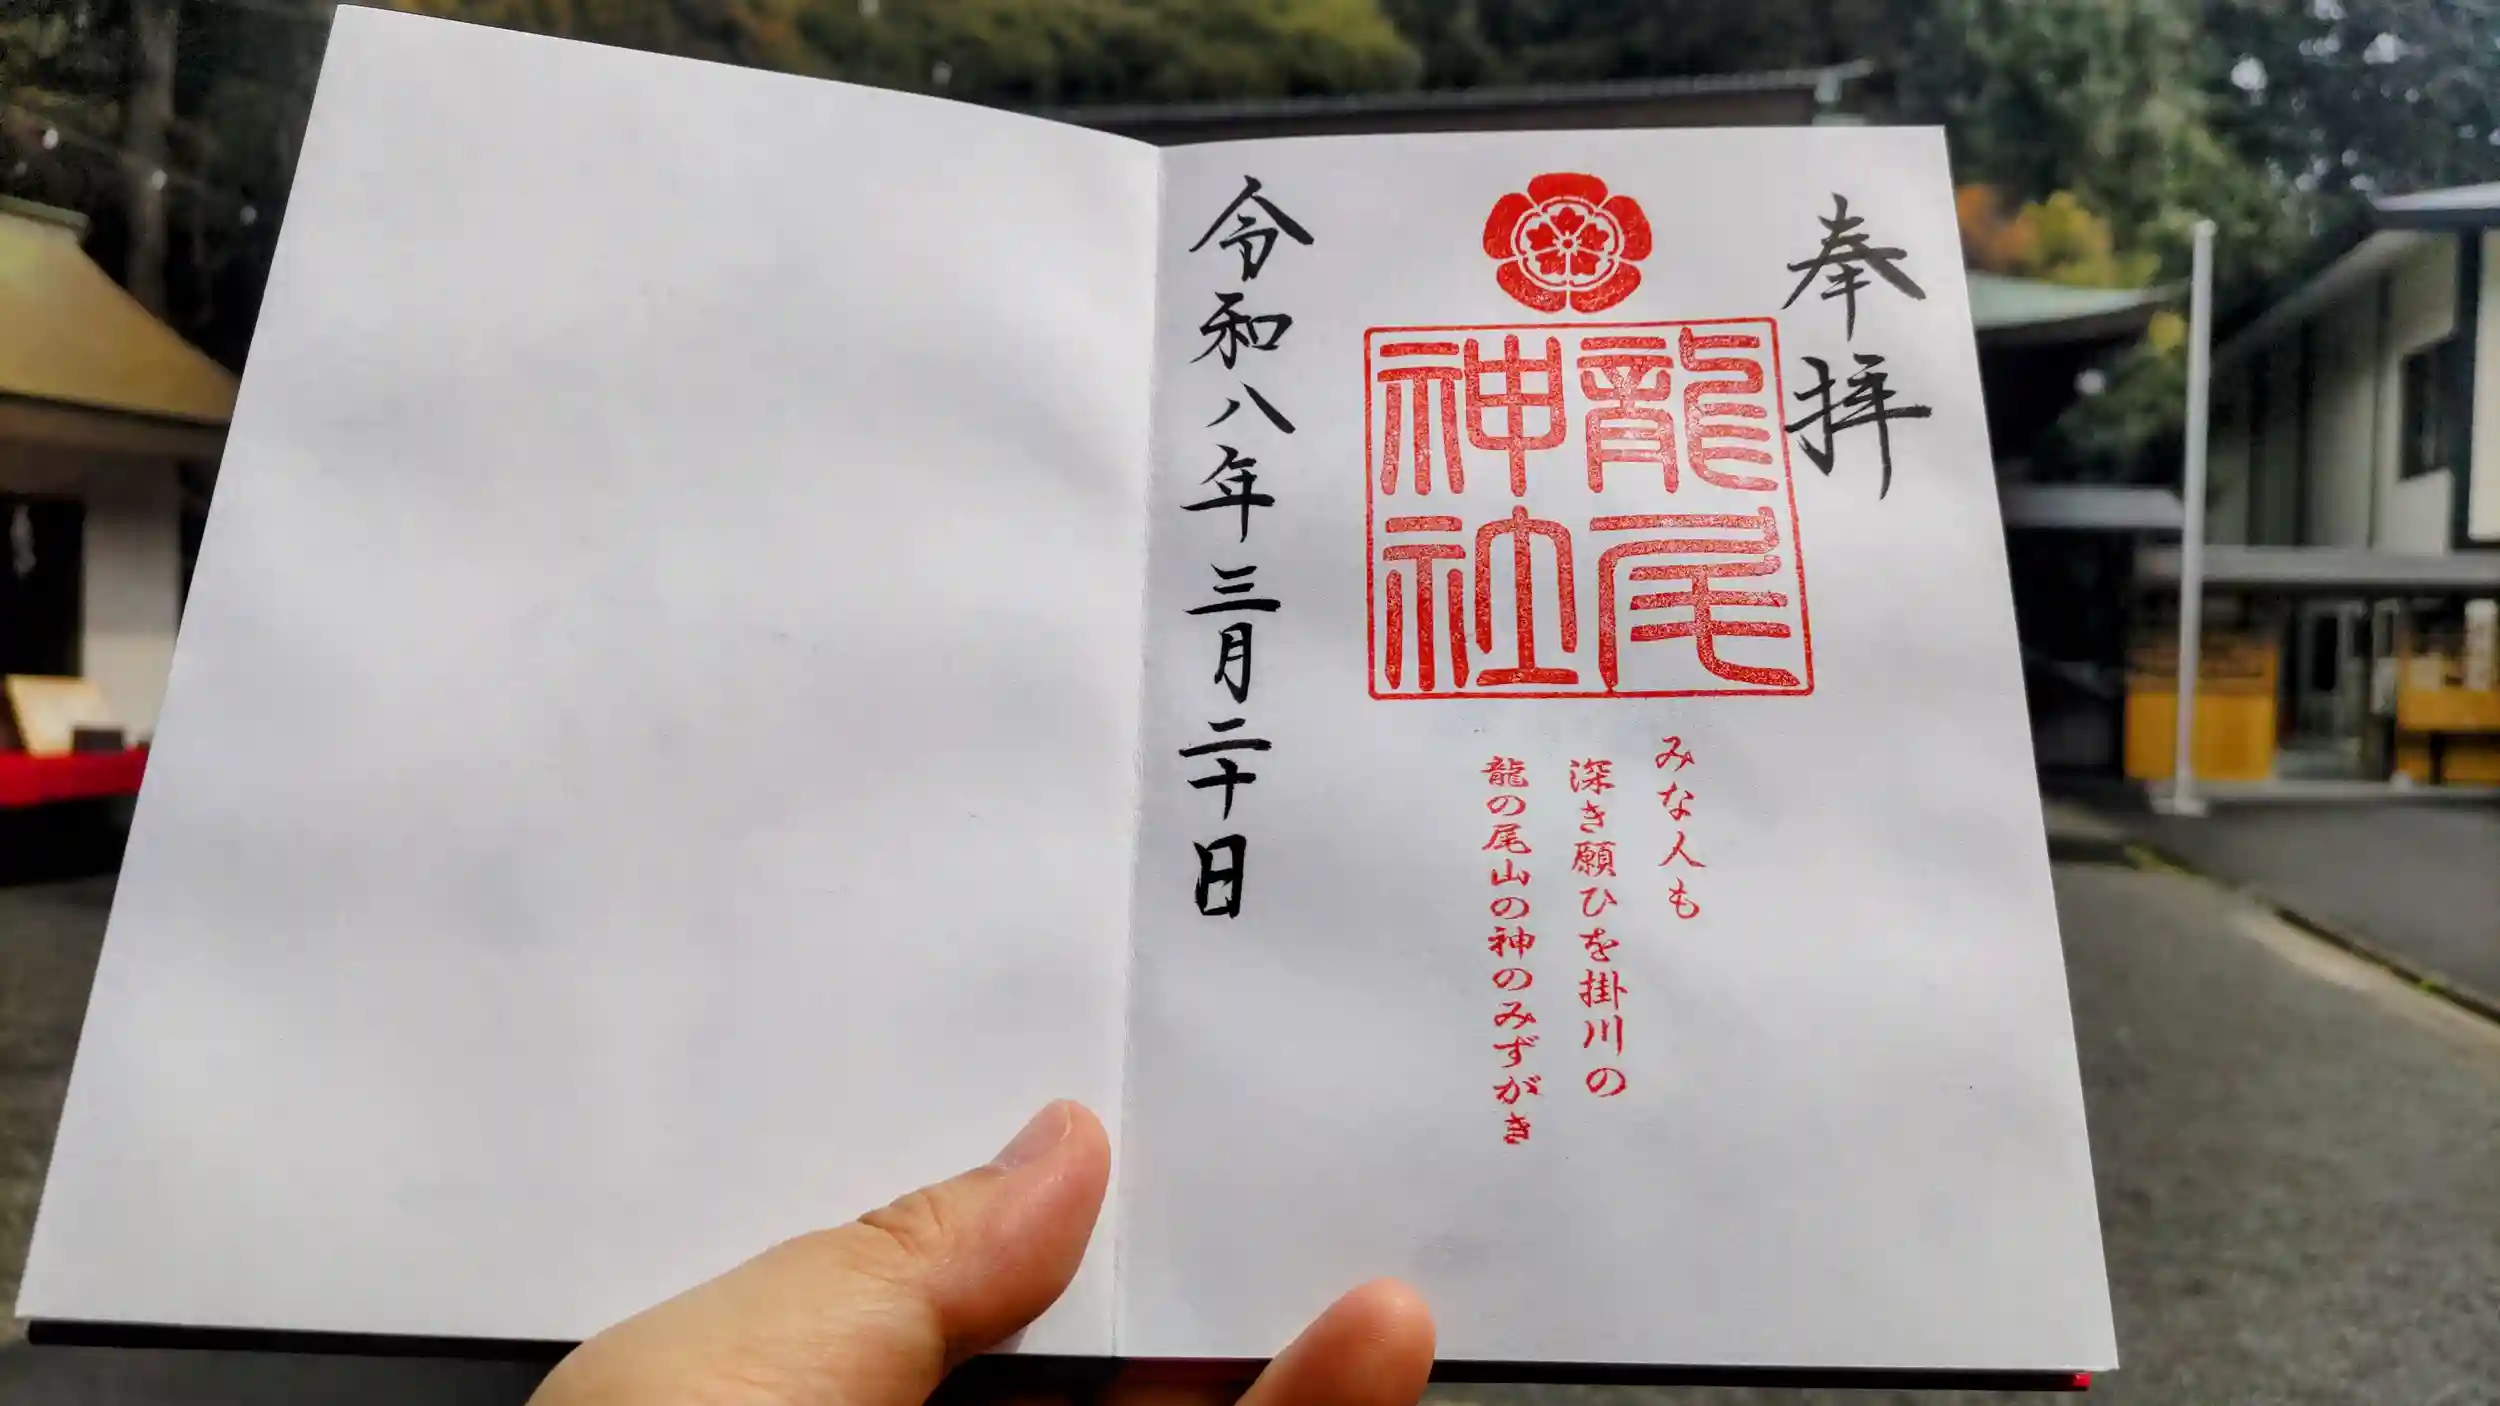 奉拝
龍尾神社
みな人も
深き願ひを掛川の
龍の尾山の神のみずがき
令和八年三月二十日